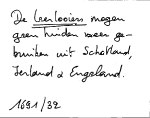 De Leerlooiers mogen
geen huiden meer ge-
bruiken uit Schotland,
Ierland & Engeland.
1691/32